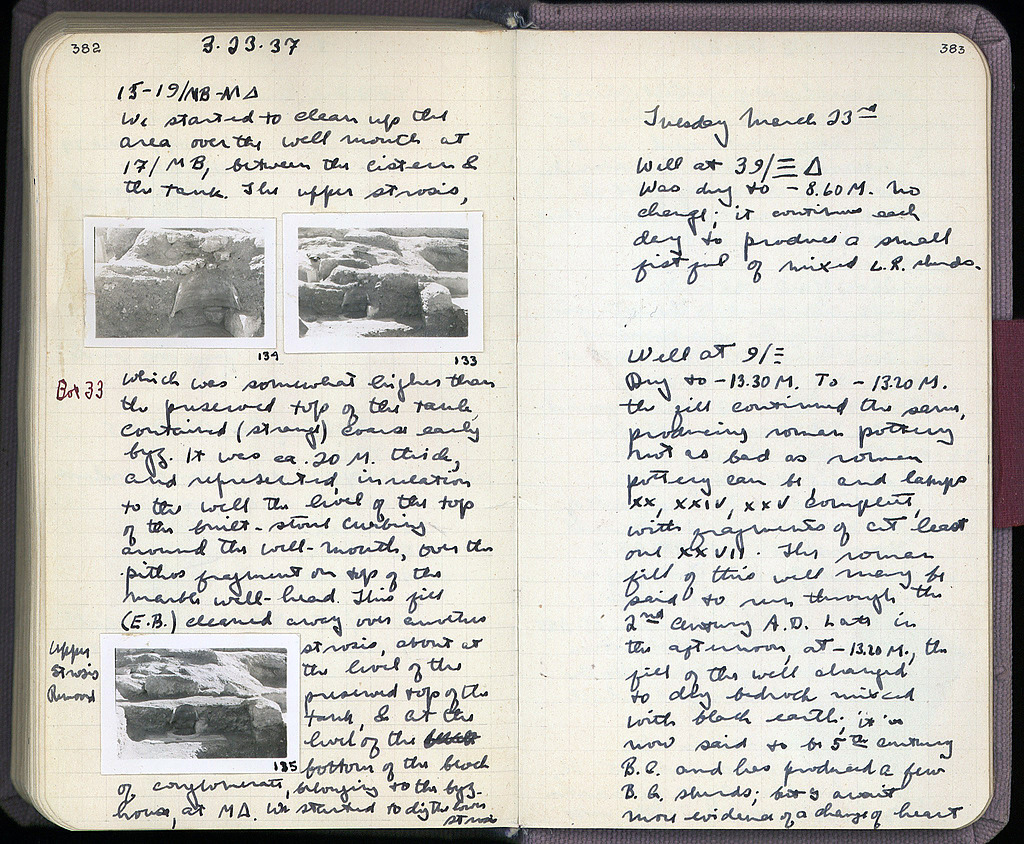 382
3.23.37
15-19/MB-MΔ
We started to clean up the
area over the well mouth at
17/MB, between the cistern &
the tank. The upper strosis,
134
133
Box 33
which was somewhat higher than
the preserved top of the tank,
contained (strange) coarse early
byz. It was ca. .20 M. thick,
and represented, in relation
to the well the level of the top
of the built-stone curbing
around the well-mouth, over the
pithos fragment on top of the
marble well-head. This fill
(E.B.) cleaned away over another
Upper
Strosis
Removed
135
strosis, about at
the level of the
preserved top of the
tank, & at the
level of the
bottom of the block
of conglomerate, belonging to the byz.
house, at MΔ. We started to dig the lower
strosis
383
Tuesday March 23rd
Well at 39/Ξ Δ
Was dug to -8.60 M. No
change; it continues each
day to produce a small
fistful of mixed L.R. sherds.
Well at 9/Ξ
Dug to -13.30 M. To -13.20 M.
the fill continued the same,
producing roman pottery
not as bad as roman
pottery can be, and lamps
XX, XXIV, XXV complete,
with fragments of at least
one XXVII. The roman
fill of this well may be
said to run through the
2nd century A.D. Late in
the afternoon, at -13.20 M., the
fill of the well changed
to dug bedrock mixed
with black earth; it is
now said to be 5th century
B.C. and has produced a few
B.G. sherds; but I await
more evidence of a change of heart